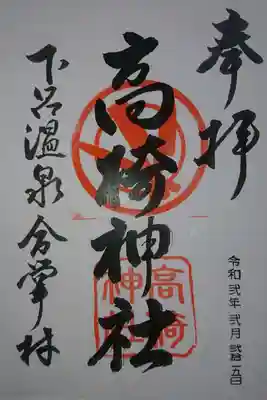 奉拝
高椅神社
高椅神社
下呂温泉合掌村
令和弐年弐月弐拾五日